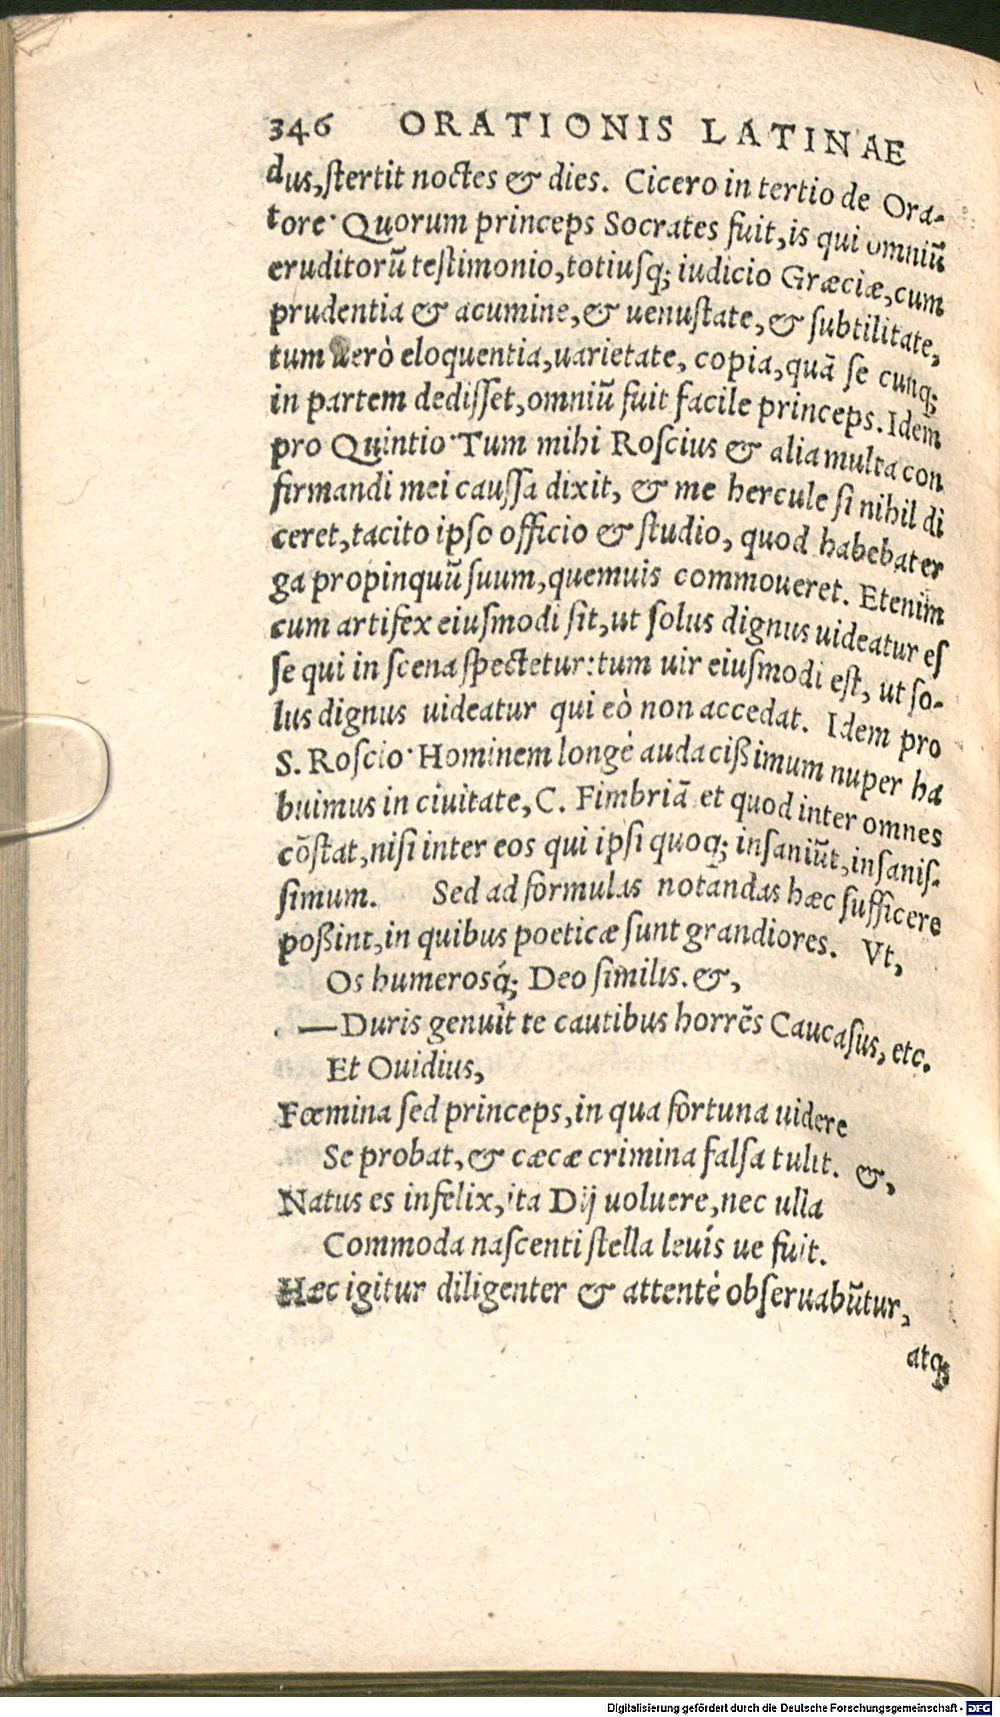 346 ORATIONIS LATINAE
dus, ſtertit noctes & dies. Cicero in tertio de Ora-
tore· Quorum princeps Socrates fuit, is qui omniũ
eruditorũ teſtimonio, totiusq; iudicio Græciæ, cum
prudentia & acumine, & uenuſtate, & ſubtilitate,
tum uerò eloquentia, uarietate, copia, quã ſe cunq;
in partem dediſſet, omniũ fuit facile princeps. Idem
pro Quintio· Tum mihi Roſcius & alia multa con
firmandi mei cauſſa dixit, & me hercule ſi nihil di
ceret, tacito ipſo officio & ſtudio, quod habebat er
ga propinquũ ſuum, quemuis commoueret. Etenim
cum artifex eiuſmodi ſit, ut ſolus dignus uideatur eſ
ſe qui in ſcena ſpectetur: tum uir eiuſmodi eſt, ut ſo-
lus dignus uideatur qui eò non accedat. Idem pro
S. Roſcio· Hominem longè audacißimum nuper ha
buimus in ciuitate, C. Fimbriã et quod inter omnes
cõſtat, niſi inter eos qui ipſi quoq; inſaniũt, inſaniſ-
ſimum. Sed ad formulas notandas hæc ſufficere
poßint, in quibus poeticæ ſunt grandiores. Vt,
Os humerosq́; Deo ſimilis. &,
—Duris genuit te cautibus horrẽs Caucaſus, etc.
Et Ouidius,
Fœmina ſed princeps, in qua fortuna uidere
Se probat, & cæcæ crimina falſa tulit. &,
Natus es infelix, ita Dij uoluere, nec ulla
Commoda naſcenti ſtella leuís ue fuit.
Hæc igitur diligenter & attentè obſeruabũtur,
atq;
Digitalisierung gefördert durch die Deutsche Forschungsgemeinschaft - DFG